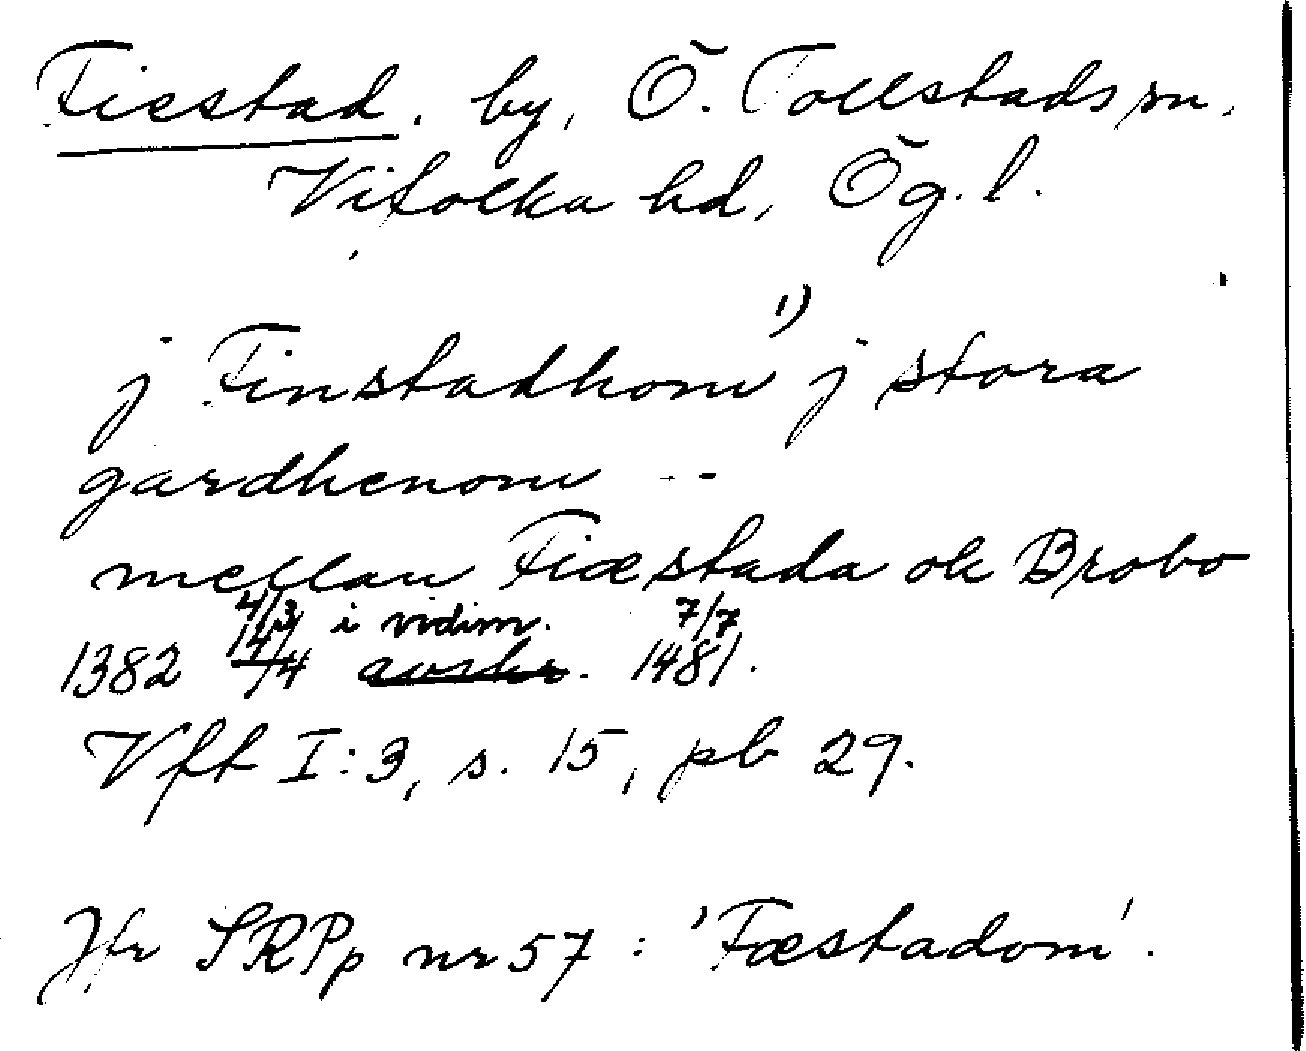 Fiestad. by, Ö. Tollstads sn,
Vifolka hd, Ög. l.
j Finstadhom 1) j stora
gardhenom --
mellan Fiæstada ok Brobo
4/3 i vidim. 7/7
1382 14/4 avskr. 1481.
Vft I:3, s. 15, pb 29.
Jfr SRPp nr 57 : 'Fæstadom'.